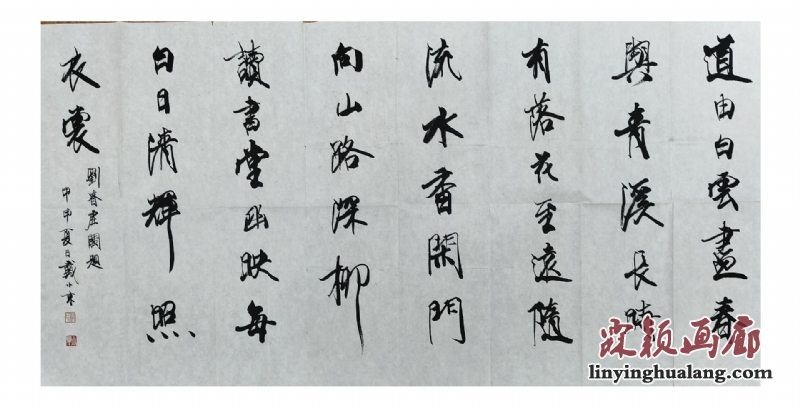 道由白雲盡春
與青溪長時
有落花至遠隨
流水香閑門
向山路深柳
讀書堂幽映每
白日清輝照
衣裳
劉眘虛闕題
甲申夏日戴小京
霖颖画廊
linyinghualang.com